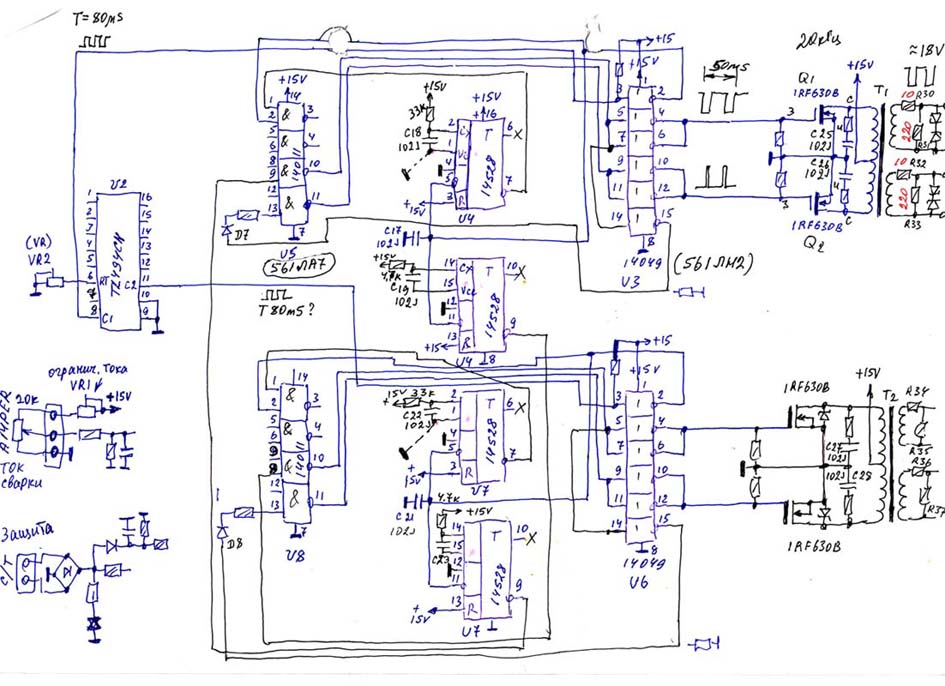 T=80mS
(VR)
VR2
U2
TL494CN
RT
C1
C2
1
2
3
4
5
6
7
8
16
15
14
13
12
11
10
9
+15V
14
&
&
&
&
14011
1
2
5
6
8
9
12
13
3
4
10
11
7
D7
U5
(561ЛА7)
T80mS?
+15V
33K
C18
102J
+15V
16
Cx
Vcc
R
T
14528
2
1
4
5
3
6
X
7
+15V
U4
C17
102J
+15V
4,7K
C19
102J
Cx
Vcc
R
T
14528
14
15
12
11
13
10
X
9
+15
8
U4
+15
+15V
1
3
5
7
9
11
14
2
4
6
10
12
15
8
14049
U3
(561ЛН2)
50mS
20кГц
Q1
IRF630B
C25
102J
C26
102J
IRF630B
Q2
+15V
T1
≈18V
10
R30
220
R31
R32
10
220
R33
огранич. тока
VR1
+15V
20K
AMPER
ТОК
сварки
Защита
C/T
14
1
2
5
6
9
8
12
13
&
&
&
&
14011
3
4
10
11
7
U8
D8
15V
33K
C22
102J
2
1
4
5
3
R
T
14528
6
X
7
+
15V
U7
C21
102J
4.7K
+15V
C23
14
15
12
11
13
R
T
14528
10
X
9
+
15V
U7
+15
1
3
5
7
9
11
14
2
4
6
10
12
15
8
14049
U6
IRF630B
C27
102J
102J
C28
IRF630B
+15V
T2
R34
R35
R36
R37